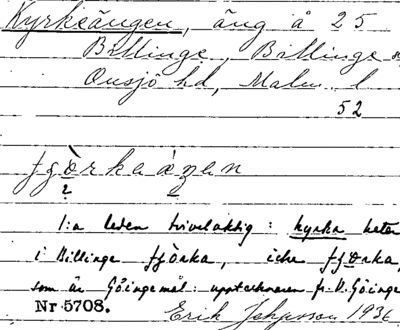 Kyrkeängen, äng å 25
Billinge, Billinge s
Onsjö hd, Malm. l
52
fgòrkaáʒen
?
1:a leden tvivelaktig: kyrka heter
i Billinge fjòrka, icke fgòrka,
som är Göingemål: upptecknaren fr. V. Göinge
Nr 5708. Erik Johnsson 1936